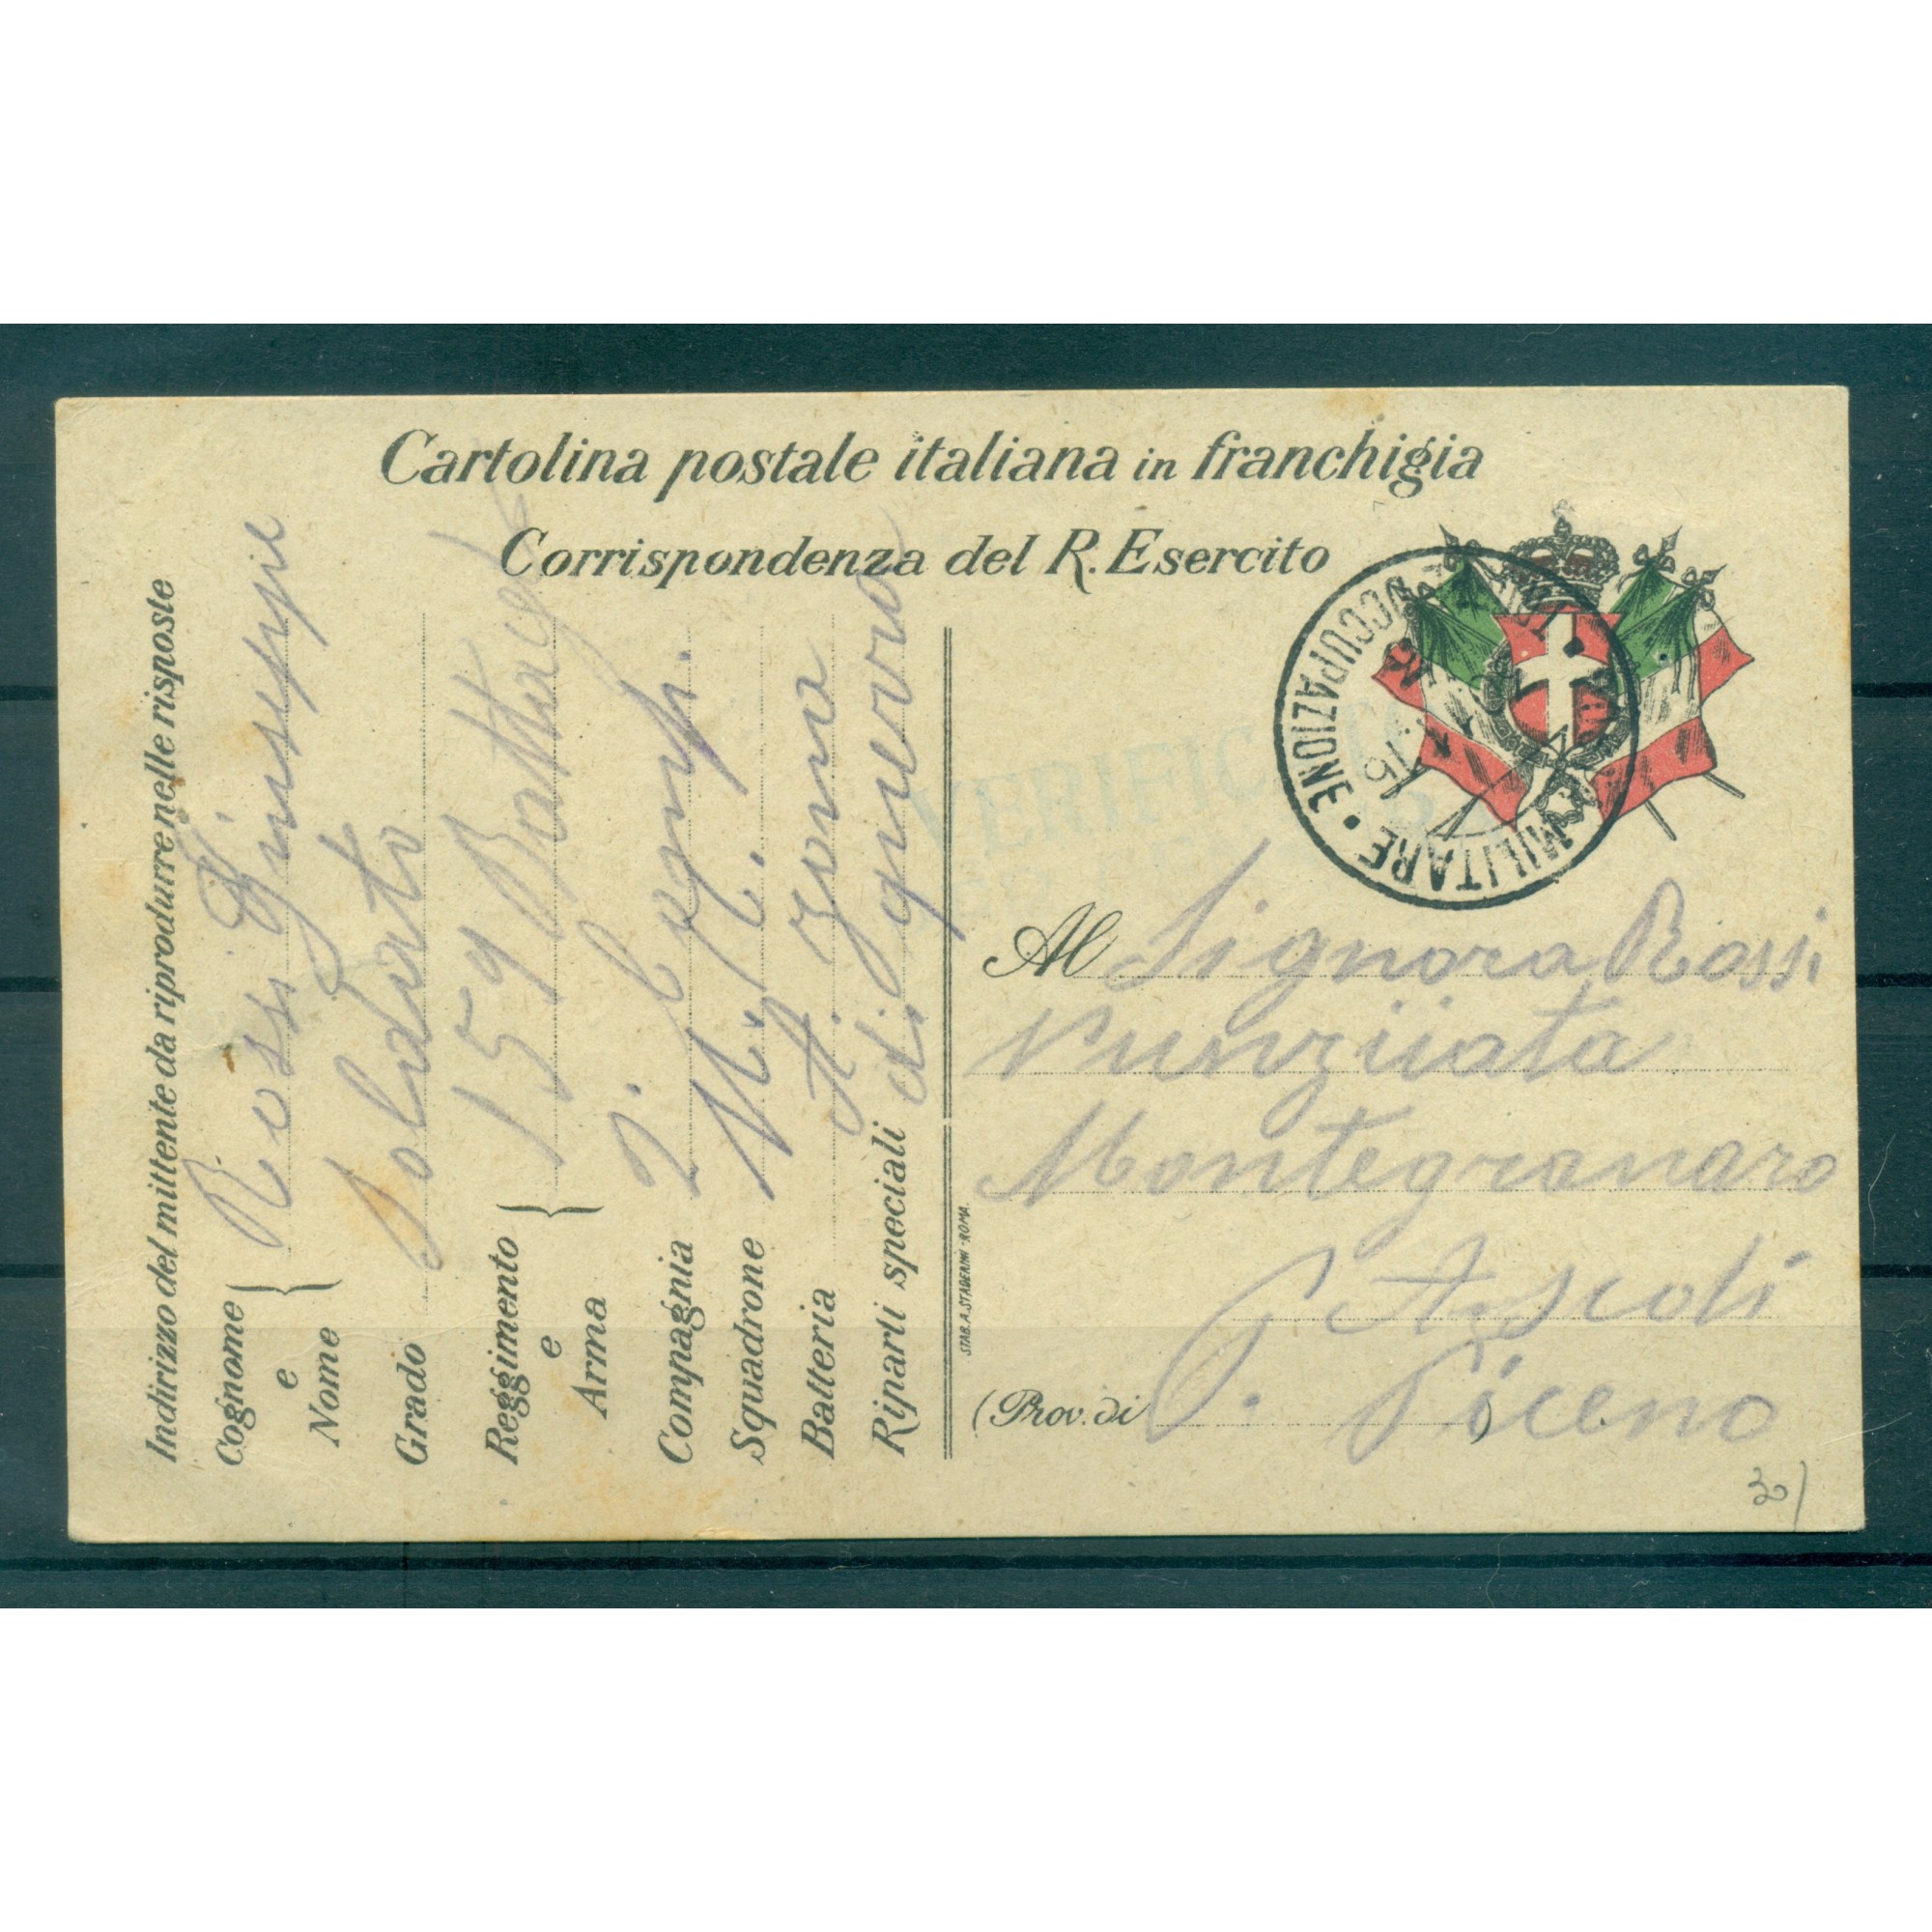 Cartolina postale italiana in franchigia
Corrispondenza del R. Esercito
Indirizzo del mittente da riprodurre nelle risposte
Cognome e Nome } Rossi Giuseppe
Grado Soldato
Reggimento e Arma } 159 Battagl
Compagnia 2. Comp.
Squadrone M. T.
Batteria A. Zona
Riparti speciali di guerra
STAB. A. STADERINI - ROMA.
OCCUPAZIONE • MILITARE
16
VERIFICATO
Al Signora Rossi
Nunziiata
Montegranaro
P. Ascoli
(Prov. di Piceno)
30